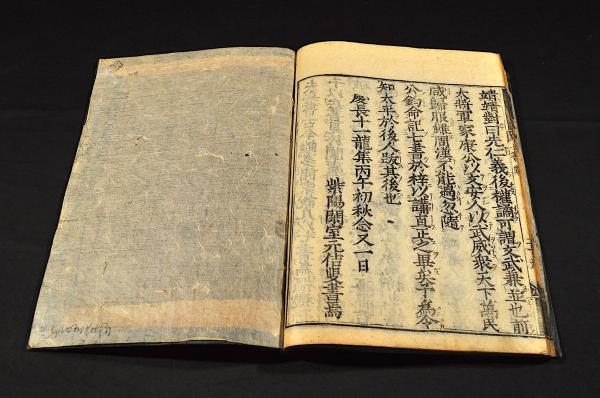 靖靖對曰先仁義後權譎可謂文武兼並也前
大將軍家康公以文安人以武威衆天下萬民
咸歸服雖周漢不能過忽隨
公鈞命記七書於梓以講直正之矣令
知太平於後人跋其後也
慶長十一龍集丙午初秋念又一日
紫陽閑室元佶叟書焉